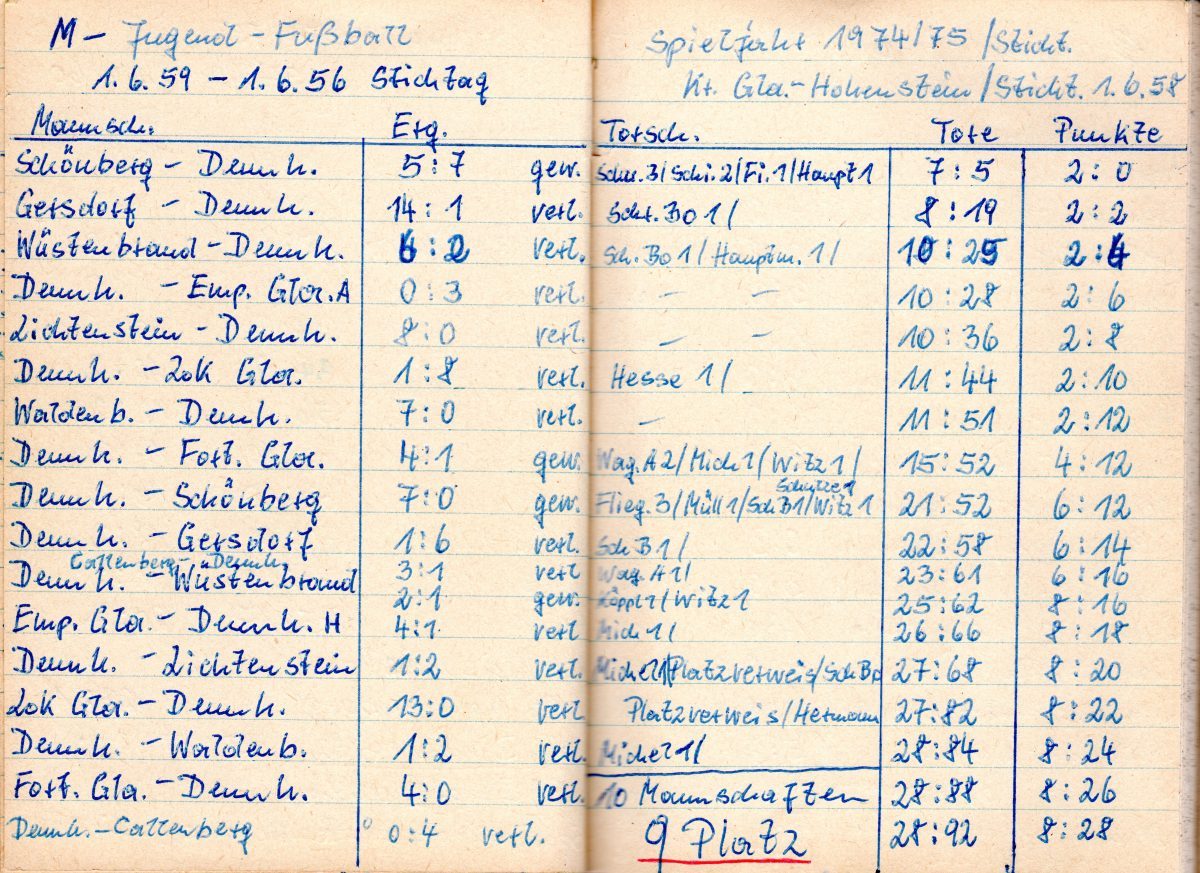 M - Jugend - Fußball
1.6.59 - 1.6.56 Stichtag
Spieljahr 1974/75 /Sticht.
Kr. Gla.-Hohenstein/Sticht. 1.6.58
Mannsch. Erg. Torsch. Tore Punkte
Schönberg - Dennh. 5:7 gew. Schu.3/Schi.2/Fi.1/Haupt1 7:5 2:0
Gersdorf - Dennh. 14:1 verl. Schr.Bo1/ 8:19 2:2
Wüstenbrand - Dennh. 6:2 verl. Sch.Bo1/Hauptm.1/ 10:25 2:4
Dennh. - Emp. Gla.A 0:3 verl. - - 10:28 2:6
Lichtenstein - Dennh. 8:0 verl. - - 10:36 2:8
Dennh. - Lok Gla. 1:8 verl. Hesse 1/ 11:44 2:10
Waldenb. - Dennh. 7:0 verl. - 11:51 2:12
Dennh. - Fort. Gla. 4:1 gew. Wag.A2/Mich1/Witz1/ 15:52 4:12
Dennh. - Schönberg 7:0 gew. Flieg.3/Müll1/SchB1/Witz1 21:52 6:12
Dennh. - Gersdorf 1:6 verl. Sch.B1/ 22:58 6:14
Callenberg - Dennh. 3:1 verl Wag.A1/ 23:61 6:16
Dennh. - Wüstenbrand 2:1 gew. Köppl1/Witz1 25:62 8:16
Emp. Gla. - Dennh. H 4:1 verl Mich1/ 26:66 8:18
Dennh. - Lichtenstein 1:2 verl. Michel1/Platzverweis/SchBo 27:68 8:20
Lok Gla. - Dennh. 13:0 verl Platzverweis/Hermann 27:82 8:22
Dennh. - Waldenb. 1:2 verl. Michel1/ 28:84 8:24
Fort. Gla. - Dennh. 4:0 verl. 10 Mannschaften 28:88 8:26
Dennh. - Callenberg 0:4 verl. 9 Platz 28:92 8:28